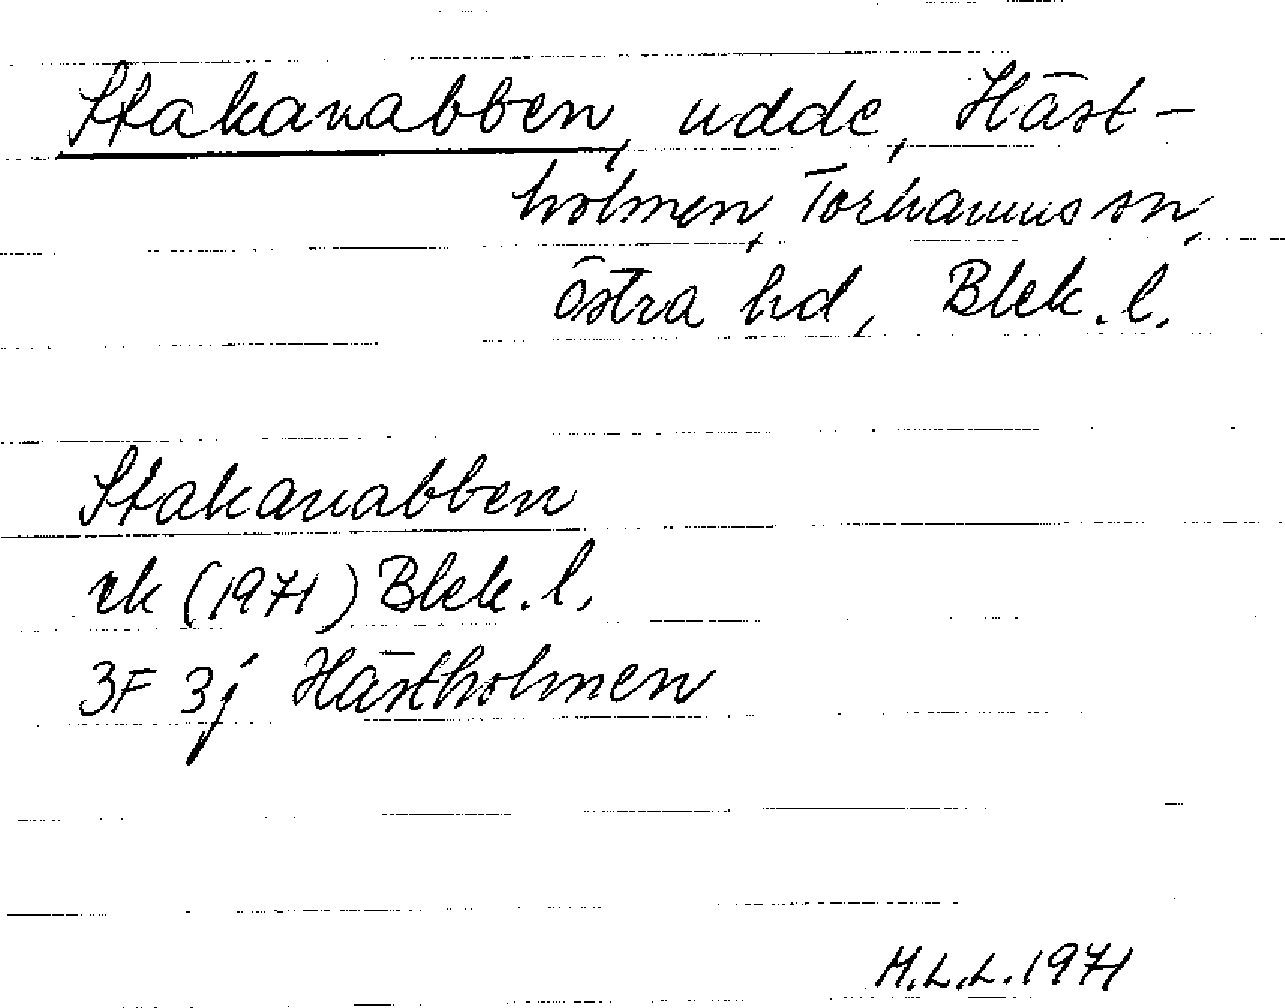 Stakanabben, udde, Häst-
holmen, Torhamns sn,
östra hd, Blek. l.
Stakanabben
ek (1971) Blek. l.
3F 3j Hästholmen
M.L.L. 1971